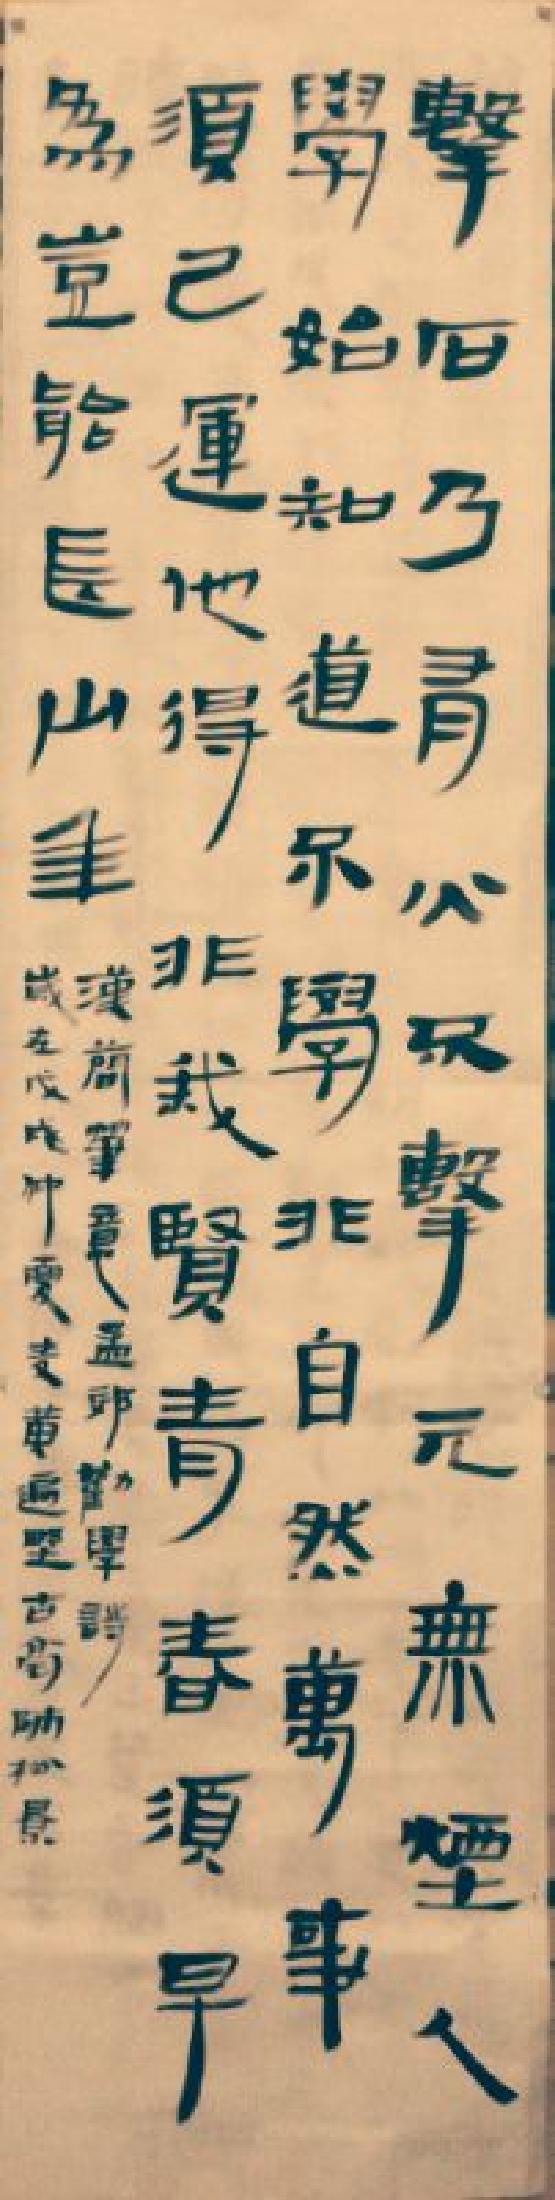 擊石乃有火不擊元無煙人
學始知道不學非自然萬事
須己運他得非我賢青春須早
為豈能長少年
漢簡筆意孟郊勸學詩
歲在戊戌仲夏